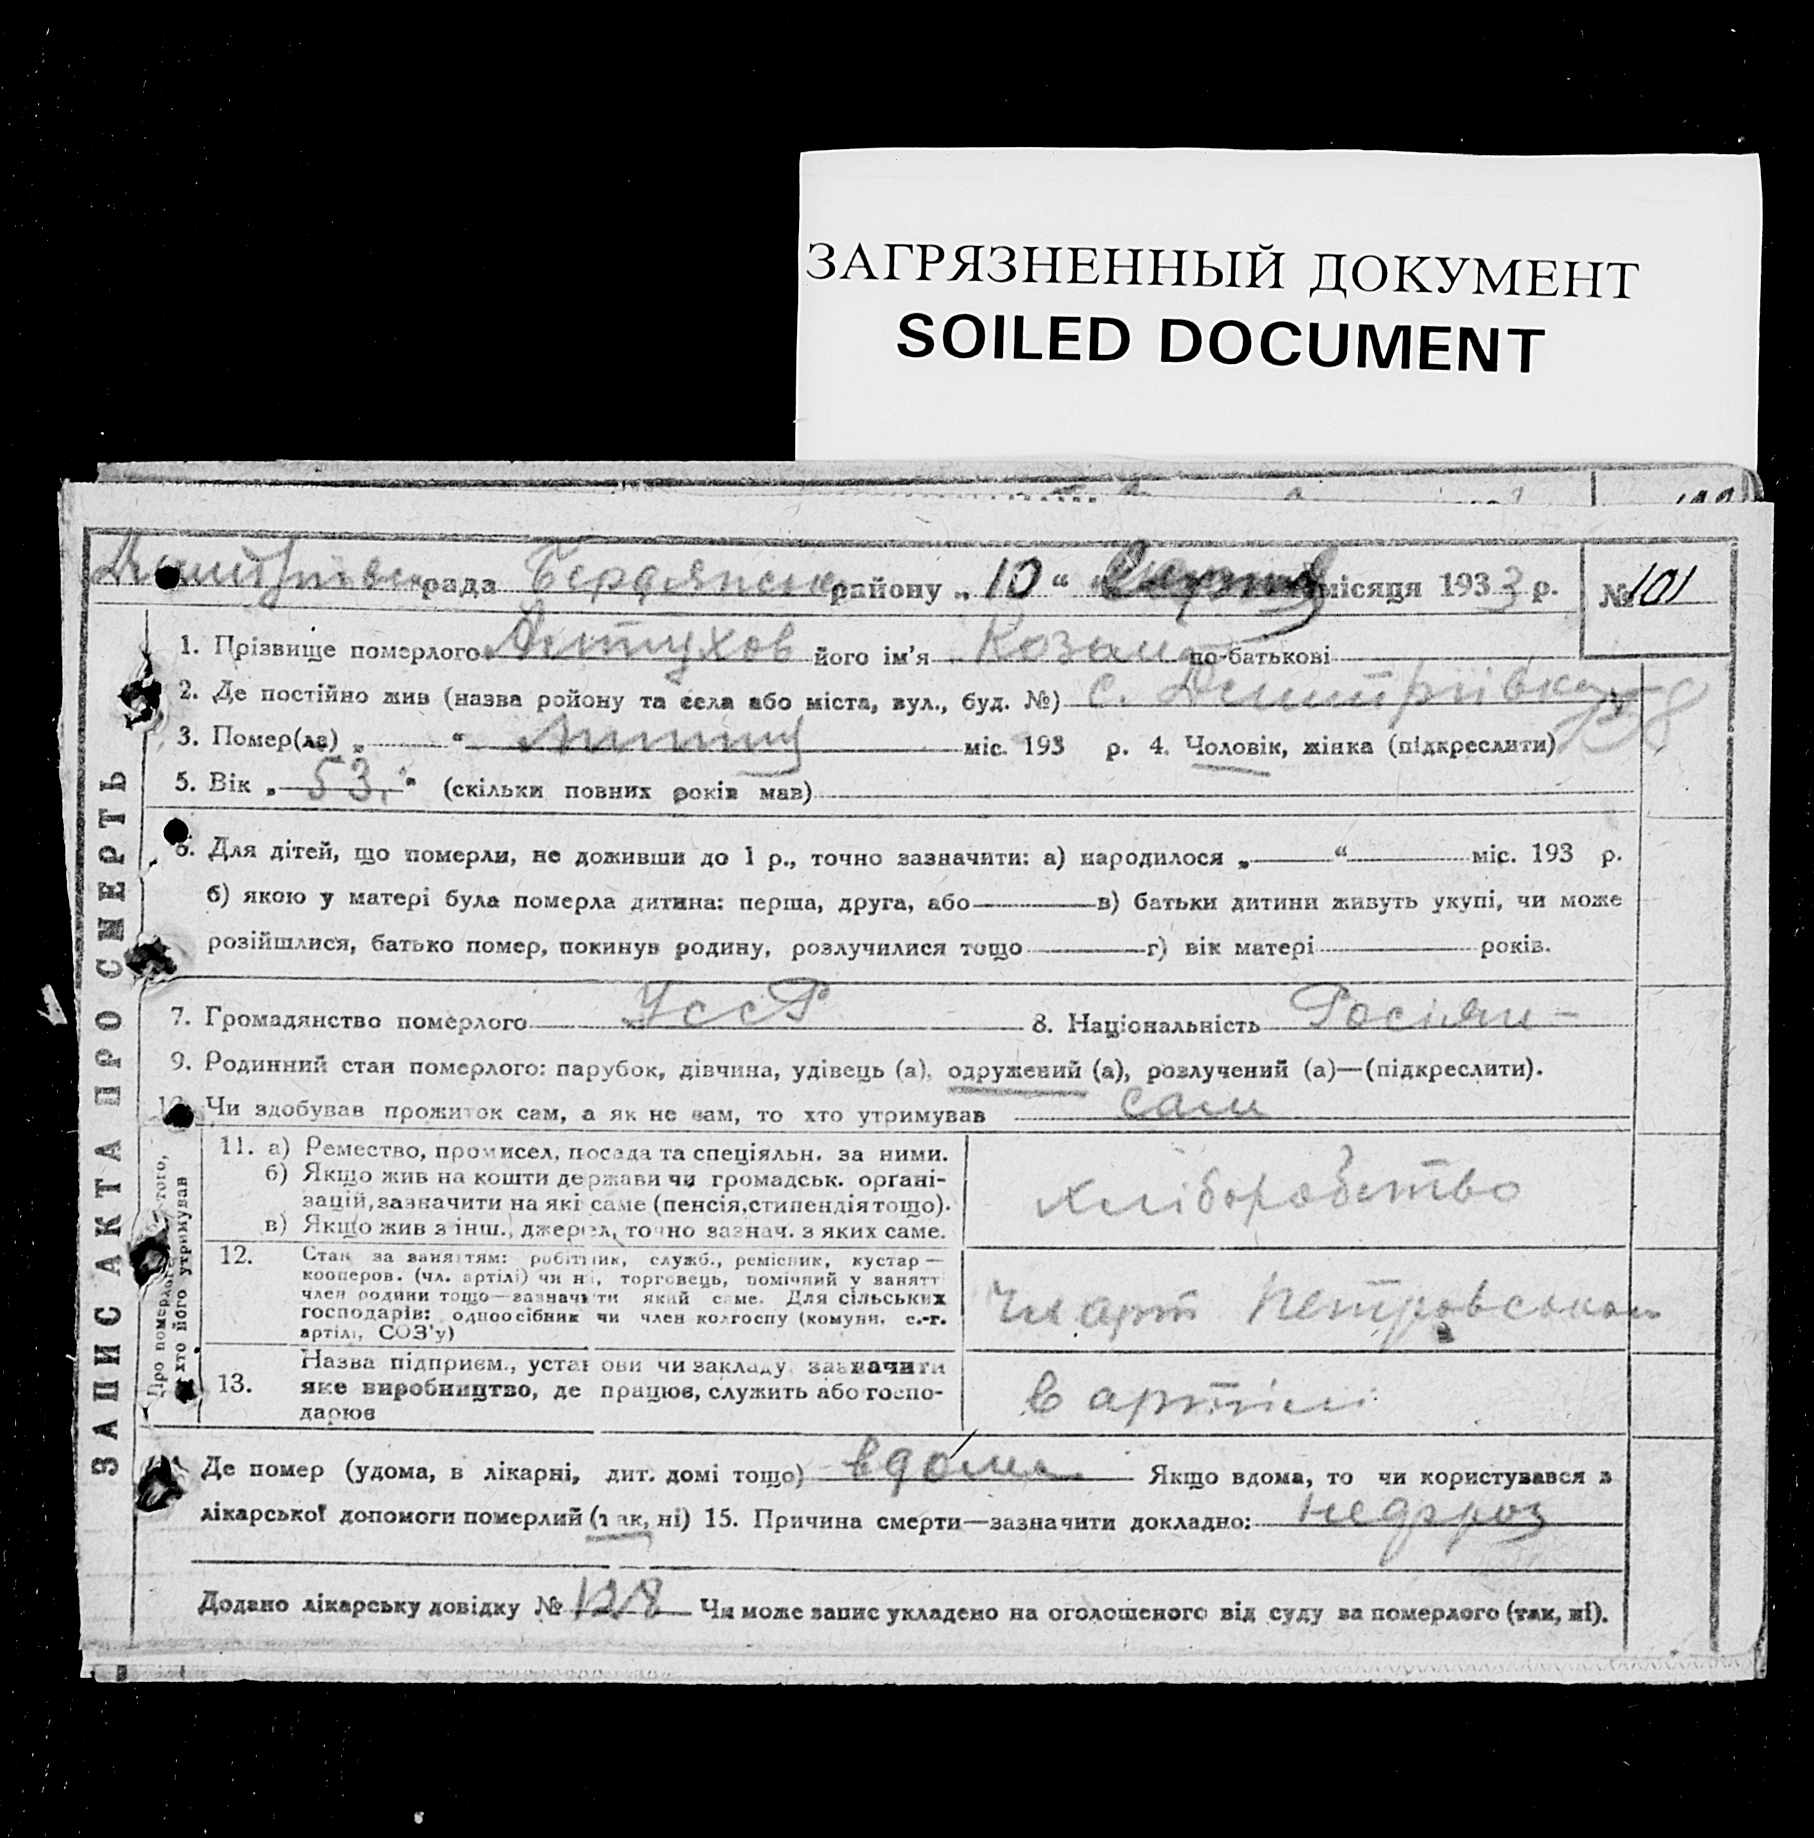 ЗАГРЯЗНЕННЫЙ ДОКУМЕНТ
SOILED DOCUMENT
рада Бердянськ району „ 10 “ місяця 1933 р. № 101
ЗАПИС АКТА ПРО СМЕРТЬ
1. Прізвище померлого його ім'я по-батькові
2. Де постійно жив (назва ройону та села або міста, вул., буд. №) с. Дмитрівка
3. Помер(ла) „ “ міс. 193 р. 4. Чоловік, жінка (підкреслити)
5. Вік „ 53. “ (скільки повних років мав)
6. Для дітей, що померли, не доживши до 1 р., точно зазначити: а) народилося „ “ міс. 193 р.
б) якою у матері була померла дитина: перша, друга, або в) батьки дитини живуть укупі, чи може
розійшлися, батько помер, покинув родину, розлучилися тощо г) вік матері років.
7. Громадянство померлого УССР 8. Національність Росіян-
9. Родинний стан померлого: парубок, дівчина, удівець (а), одружений (а), розлучений (а)—(підкреслити).
10. Чи здобував прожиток сам, а як не сам, то хто утримував сам
Про померлого того,
хто його утримував
11. а) Ремество, промисел, посада та спеціяльн. за ними.
б) Якщо жив на кошти держави чи громадськ. органі-
зацій, зазначити на які саме (пенсія, стипендія тощо).
в) Якщо жив з інш., джерел, точно зазнач. з яких саме.
хліборобство
12. Стан за заняттям: робітник, служб., ремісник, кустар—
кооперов. (чл. артілі) чи ні, торговець, помічний у занятті
член родини тощо—зазначити який саме. Для сільських
господарів: одноосібник чи член колгоспу (комуни, с.-г.
артілі, СОЗ'у)
Чл арт Петровського
13. Назва підприєм., установи чи закладу, зазначити
яке виробництво, де працює, служить або госпо-
дарює
в артілі
Де помер (удома, в лікарні, дит. домі тощо) вдома Якщо вдома, то чи користувався з
лікарської допомоги померлий (так, ні) 15. Причина смерти—зазначити докладно:
Додано лікарську довідку № 128 Чи може запис укладено на оголошеного від суду за померлого (так, ні).